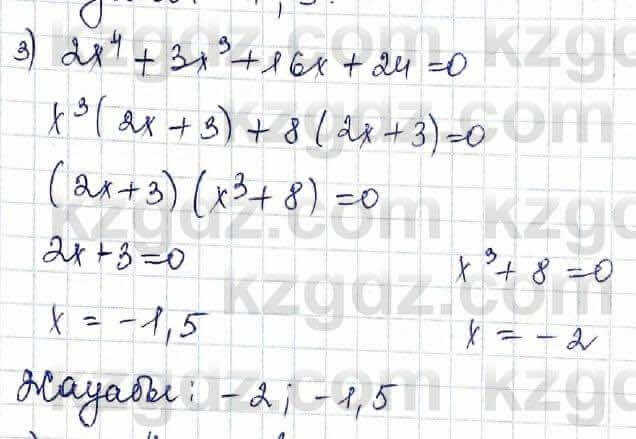 3) 2x⁴ + 3x³ + 16x + 24 = 0
x³(2x + 3) + 8(2x + 3) = 0
(2x + 3)(x³ + 8) = 0
2x + 3 = 0 x³ + 8 = 0
x = -1,5 x = -2
Жауабы: -2; -1,5
kzgdz.com